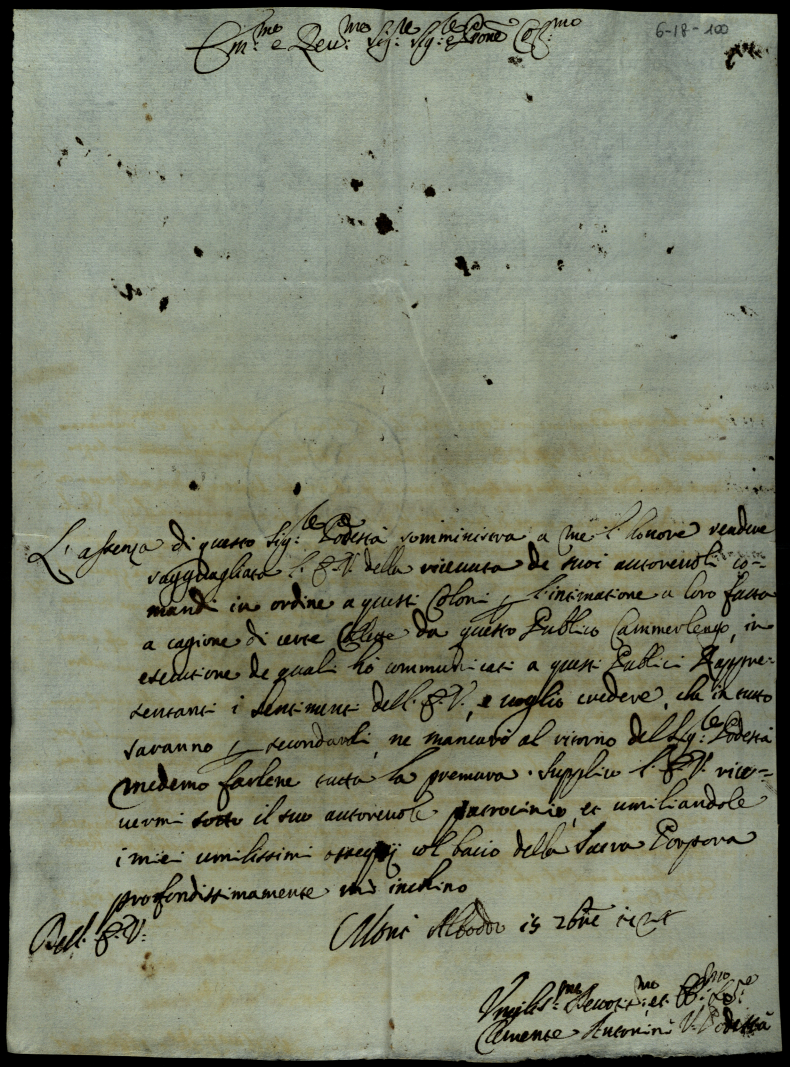 6-18-100
Em.mo e Rev.mo Sig.re Sig.re e Prone Col.mo
L'assenza di questo Sig.le Podestà somministra a me l'honore rendere
ragguagliata l'E.V. della ricevuta de suoi autorevoli co=
mandi in ordine a questi Coloni p l'intimatione a loro fatta
a cagione di certe Collette da questo Publico Cammerlengo, in
esecutione de quali hò communicati a questi Publici Rappre-
sentanti i sentimenti dell'E.V., e voglio credere, che in tutto
saranno p secondarli, ne mancarò al ritorno del Sig.le Podestà
medemo farlene tutta la premura. Supplico l'E.V. rice=
vermi sotto il suo autorevole patrocinio, et umiliandole
i miei umilissimi ossequij col bacio della Sacra Porpora
profondissimamente mi inchino
Dell'E.V.
Mont' Alboddo 15 2bre
Umiliss.mo Devotiss.mo et Obl.mo S.re
Clemente Antonini V. Podestà